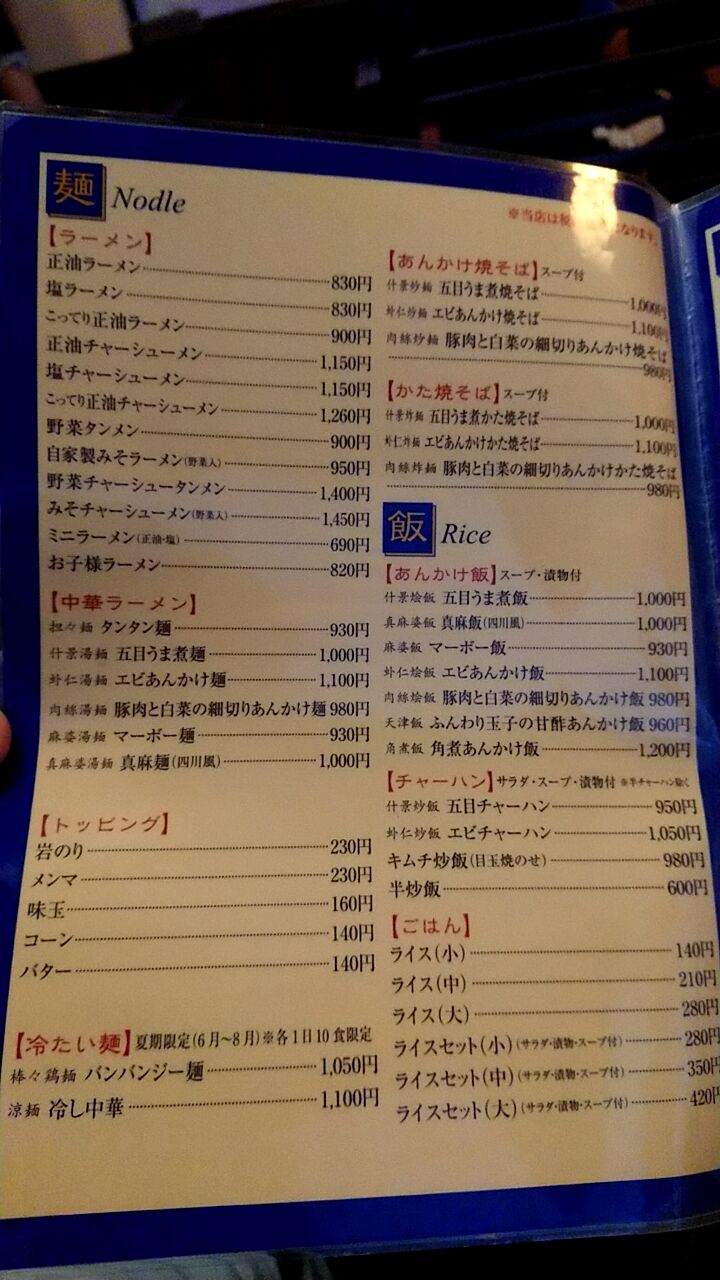 麺 Nodle
【ラーメン】
正油ラーメン 830円
塩ラーメン 830円
こってり正油ラーメン 900円
正油チャーシューメン 1,150円
塩チャーシューメン 1,150円
こってり正油チャーシューメン 1,260円
野菜タンメン 900円
自家製みそラーメン(野菜入) 950円
野菜チャーシュータンメン 1,400円
みそチャーシューメン(野菜入) 1,450円
ミニラーメン(正油・塩) 690円
お子様ラーメン 820円
【中華ラーメン】
担々麺 タンタン麺 930円
什景湯麺 五目うま煮麺 1,000円
虾仁湯麺 エビあんかけ麺 1,100円
肉絲湯麺 豚肉と白菜の細切りあんかけ麺 980円
麻婆湯麺 マーボー麺 930円
真麻婆湯麺 真麻麺(四川風) 1,000円
【トッピング】
岩のり 230円
メンマ 230円
味玉 160円
コーン 140円
バター 140円
【冷たい麺】夏期限定(6月〜8月)※各1日10食限定
棒々鶏麺 バンバンジー麺 1,050円
涼麺 冷し中華 1,100円
※当店は税 なります。
【あんかけ焼そば】スープ付
什景炒麺 五目うま煮焼そば 1,000円
虾仁炒麺 エビあんかけ焼そば 1,100円
肉絲炒麺 豚肉と白菜の細切りあんかけ焼そば
980円
【かた焼そば】スープ付
什景炸麺 五目うま煮かた焼そば 1,000円
虾仁炸麺 エビあんかけかた焼そば 1,100円
肉絲炸麺 豚肉と白菜の細切りあんかけかた焼そば
980円
飯 Rice
【あんかけ飯】スープ・漬物付
什景烩飯 五目うま煮飯 1,000円
真麻婆飯 真麻飯(四川風) 1,000円
麻婆飯 マーボー飯 930円
虾仁烩飯 エビあんかけ飯 1,100円
肉絲烩飯 豚肉と白菜の細切りあんかけ飯 980円
天津飯 ふんわり玉子の甘酢あんかけ飯 960円
角煮飯 角煮あんかけ飯 1,200円
【チャーハン】サラダ・スープ・漬物付 ※半チャーハン除く
什景炒飯 五目チャーハン 950円
虾仁炒飯 エビチャーハン 1,050円
キムチ炒飯(目玉焼のせ) 980円
半炒飯 600円
【ごはん】
ライス(小) 140円
ライス(中) 210円
ライス(大) 280円
ライスセット(小)(サラダ・漬物・スープ付) 280円
ライスセット(中)(サラダ・漬物・スープ付) 350円
ライスセット(大)(サラダ・漬物・スープ付) 420円